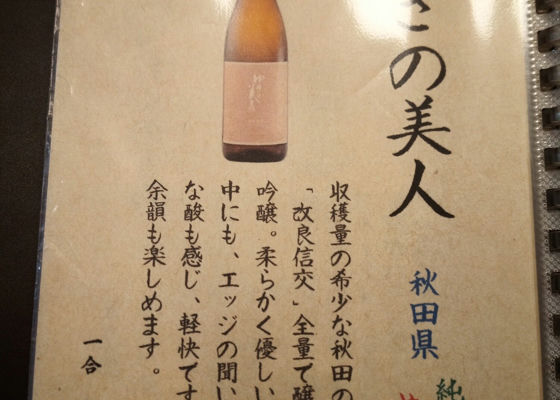 の美人
秋田県
純
収穫量の希少な秋田の
「改良信交」全量で醸
吟醸。柔らかく優しい
中にも、エッジの聞い
な酸も感じ、軽快です
余韻も楽しめます。
一合